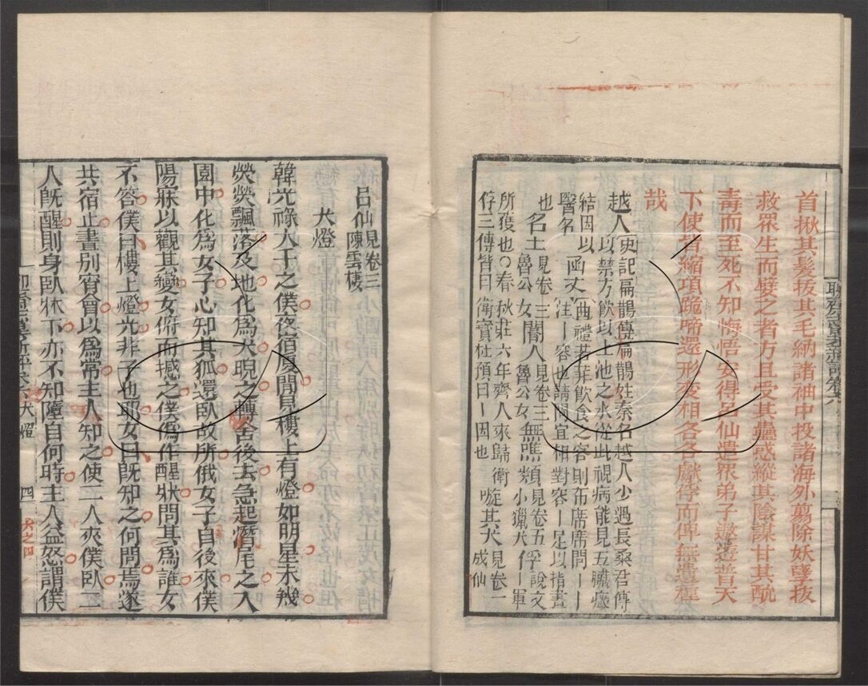 首揪其髮拔其毛納諸袖中投諸海外蕩除妖孽拔
救眾生而嬖之者方且受其蠱惑縱其陰謀甘其酖
毒而至死不知悔悟安得呂仙遣眾弟子遨遊普天
下使皆縮項跪啼還形變相各各獻俘而俾無遺種
哉
越人 史記扁鵲傳扁鵲姓秦名越人少遇長桑君傳
以禁方飲以上池之水從此視病能見五臟癥
結因以 函丈 曲禮若非飲食之客則布席席間
醫名 注 容也請問宜相對容 足以指畫
也 名士 見卷三魯公女 閽人 見卷三魯公女 無憀 類見卷五小獵犬 俘 說文 軍
所獲也○春秋莊六年齊人來歸衛
俘三傳皆曰衛寶杜預曰 囚也 嗾其犬 見卷一成仙
呂仙 見卷三陳雲棲
犬燈
韓光祿大千之僕夜宿廈間見樓上有燈如明星未幾
熒熒飄落及地化為犬睨之轉舍後去急起潛尾之入
園中化為女子心知其狐還臥故所俄女子自後來僕
陽寐以觀其變女俯而撼之僕偽作醒狀問其為誰女
不答僕曰樓上燈光非子也耶女曰既知之何問焉遂
共宿止晝別宵會以為常主人知之使二人夾僕臥二
人既醒則身臥牀下亦不知墮自何時主人益怒謂僕
犬燈
四